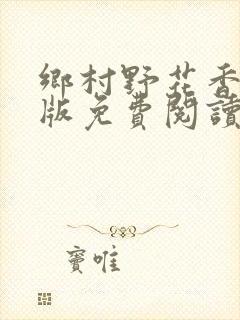 鄉村野花香
版免費閱讀
竇唯